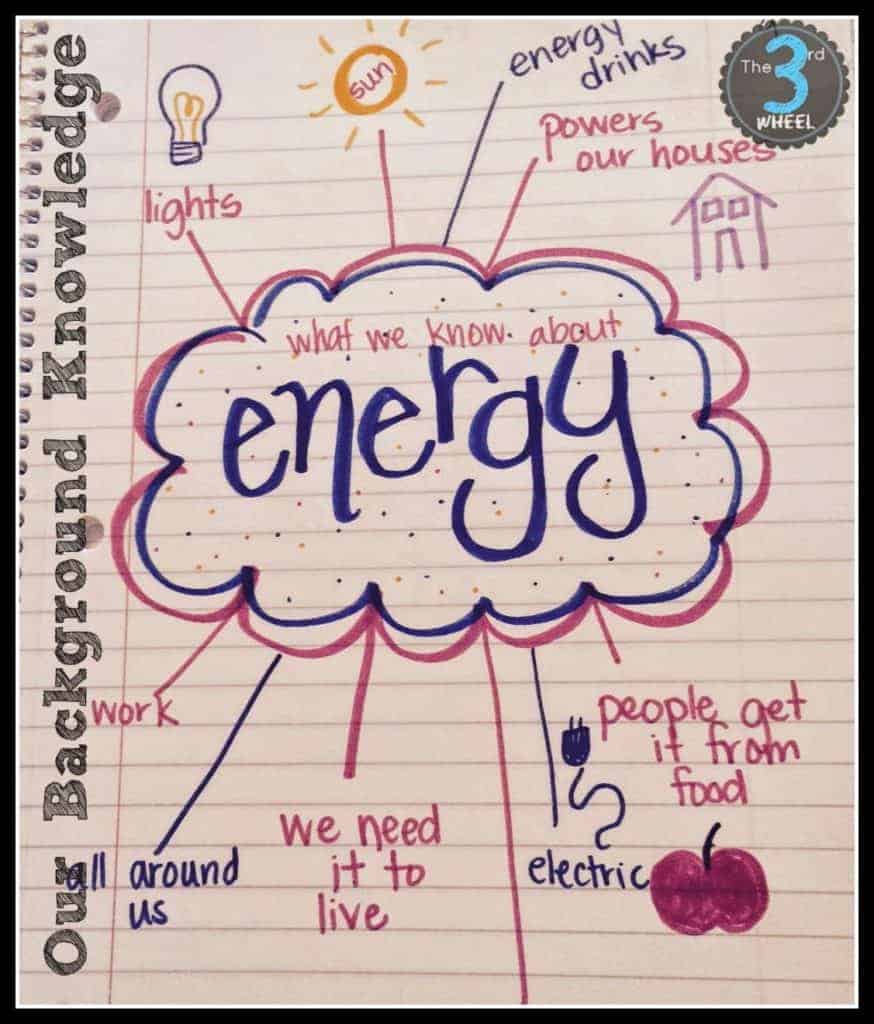 Our Background Knowledge
The 3rd
WHEEL
sun
energy
drinks
powers
our houses
lights
what we know about
energy
work
all around
us
we need
it to
live
electric
people get
it from
food